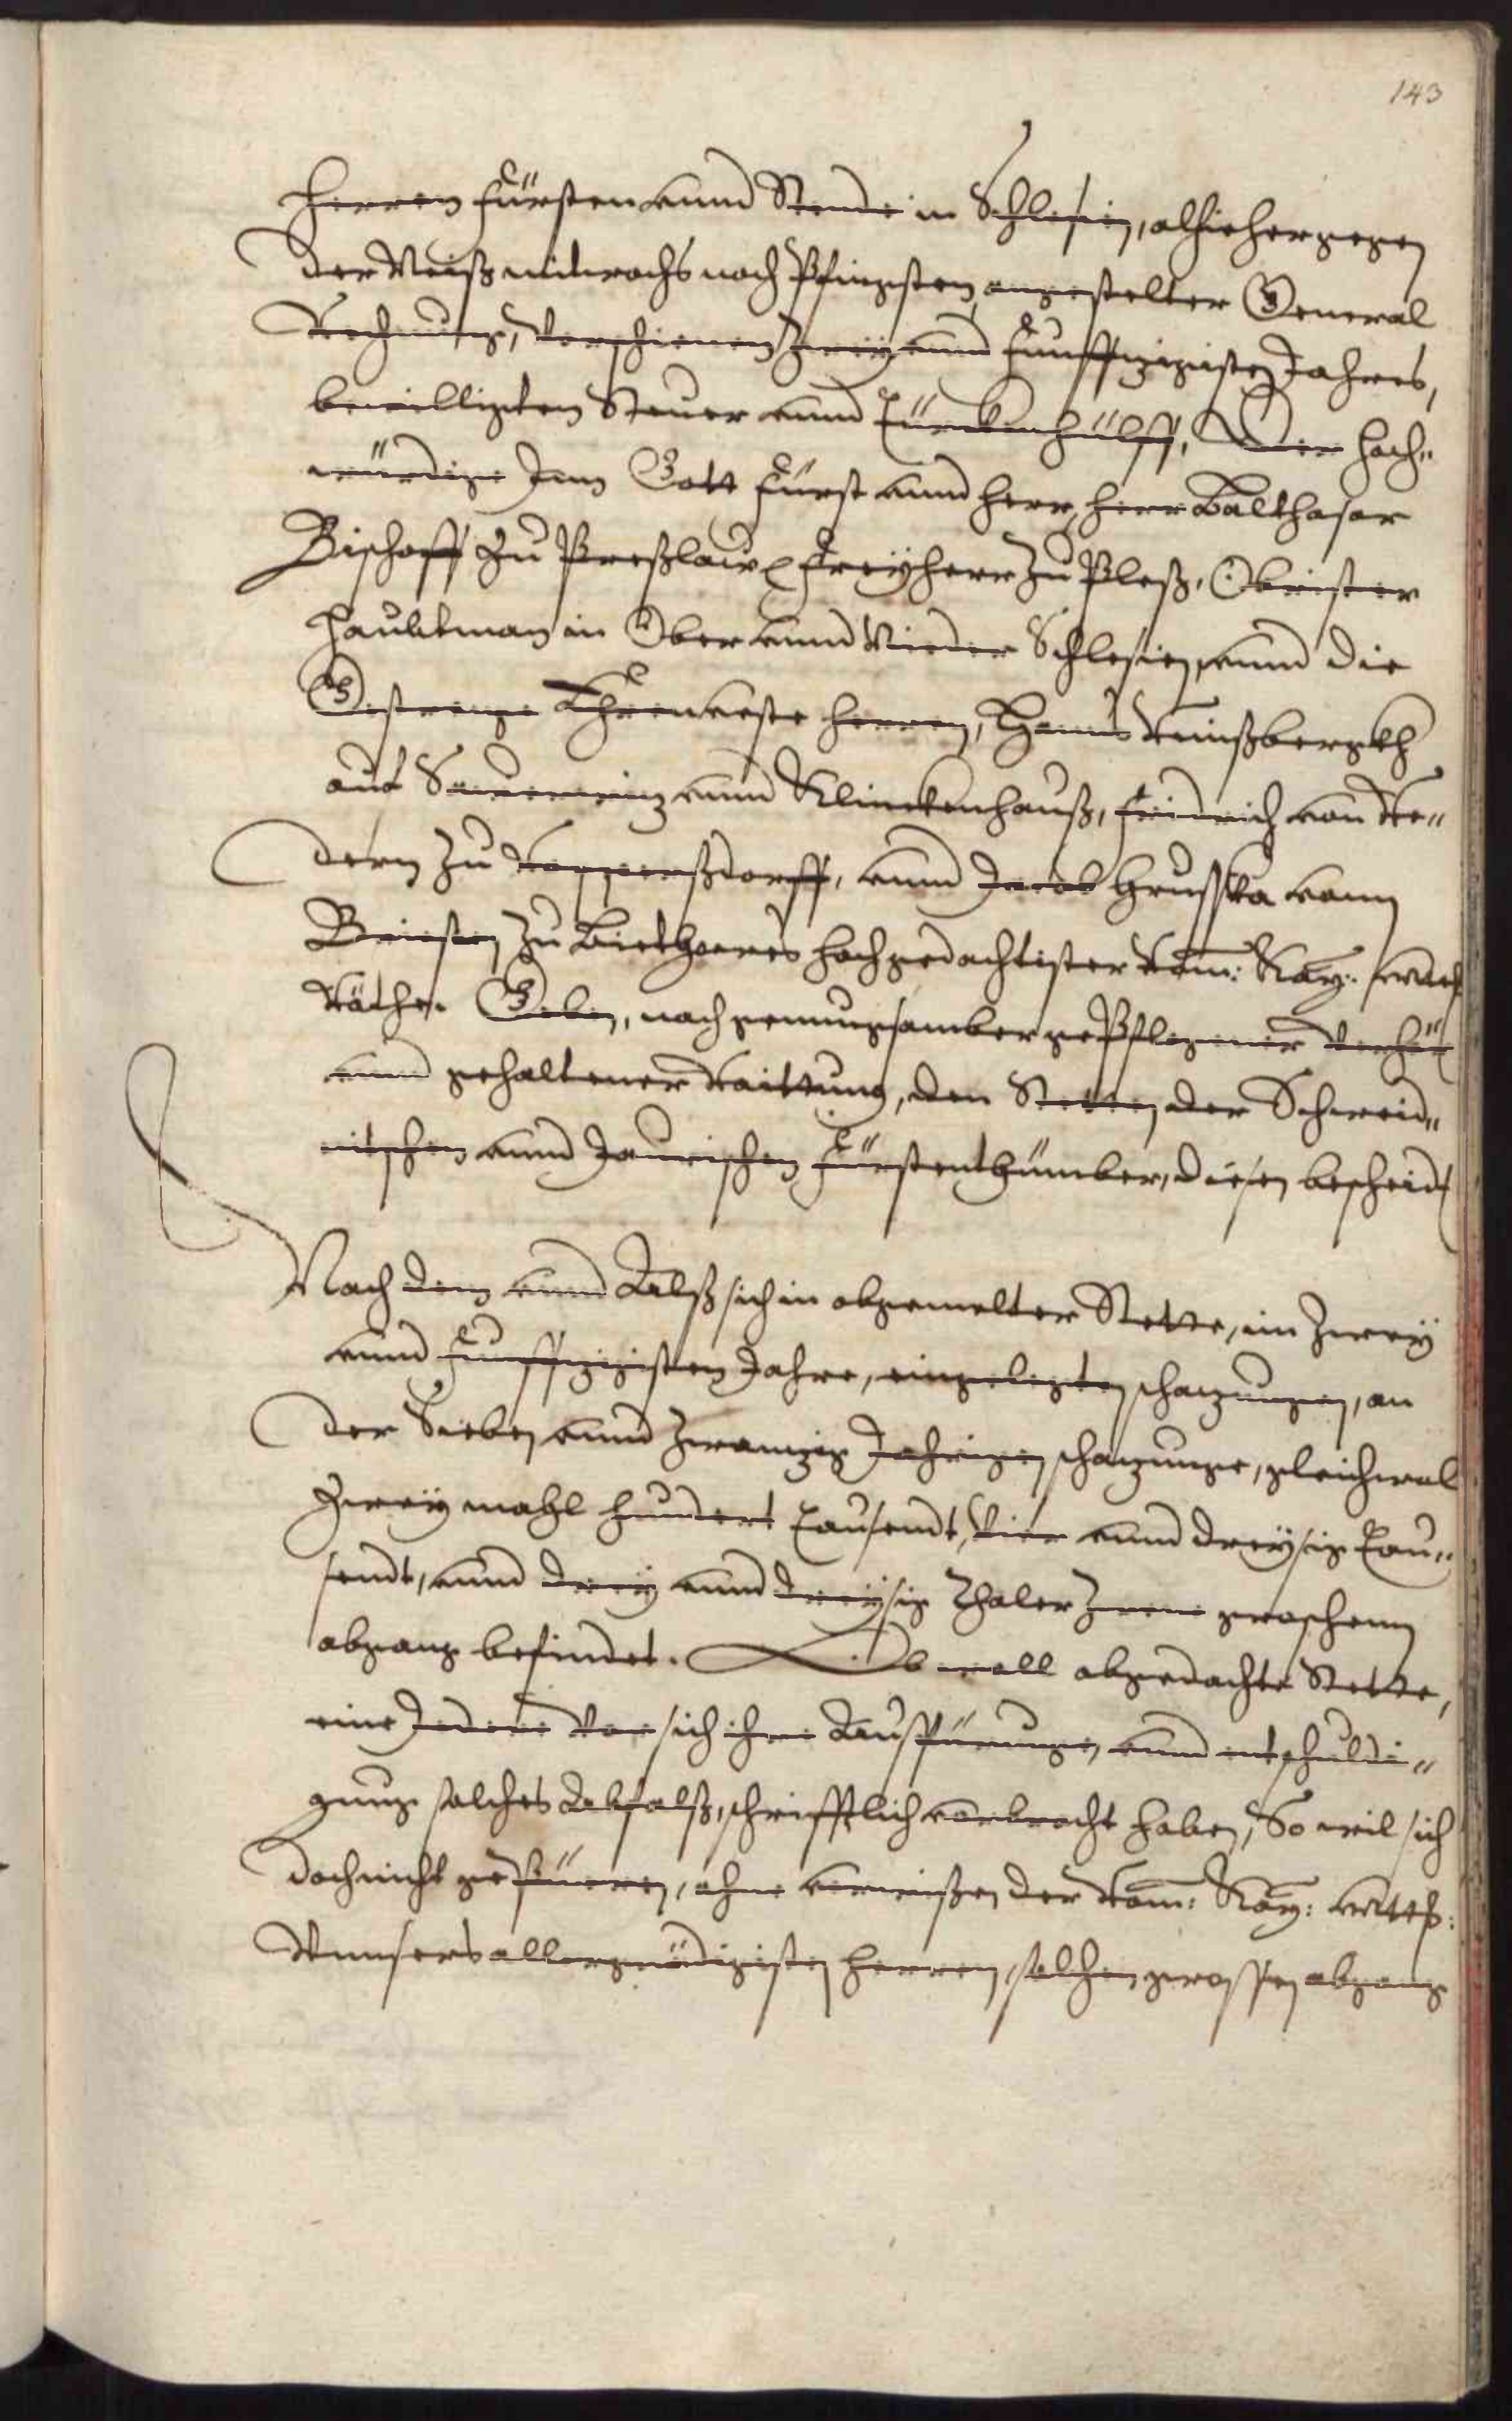 143
Herren Fürsten vnnd Stende in Schlesien, alhie hergegen
der Neiß mitwochs nach Pfingsten, angestelter General
Rechnung, Verschienen Zwey vnnd Funfftzigisten Jahres,
bewilligten Steuer vnnd Türckenhülff, Der Hoch„
würdige Inn Gott Fürst vnnd Herr, Herr Balthasar
Bischoff zu Preßlaw Freyherr zu Pleß, Obrister
Haubtman in Ober vnnd Nieder Schlesien, vnnd die
Gestrenge Ehrnveste Herren,
auf vnnd Klinckenhauß, Fridrich von Re„
dern zu Ruppersdorff, vnnd Jacob Hrusska vonn
zu hochgedachtister Röm: Kay: Matt
Räthe. Geben, nach genungsamber gepflegener Verhör
vnnd gehaltener Raittung, den Stetten der Schweid„
nitschen vnnd Jaurischen Fürstenthümber, diesen bescheidt
Nach dem vnnd Alß sich in obgemelter Stette, im Zwey
vnnd Funfftzigisten Jahre, eingelegten schatzungen, an
der Sieben vnnd Zwantzig Jahrigen schatzunge, gleichwol
Zwey mahl hundert Tausendt, Vier vnnd dreysig Tau„
sendt, vnnd drey vnnd dreysig Thaler Zwene groschenn
abgang befindet. Ob woll obgedachte Stette,
eine Jedere Vor sich ihre Ausfürunge, vnnd entschuldi„
gung solches Abfalß, schrifftlich vorbracht haben, So wil sich
doch nicht gebüeren, ohne vorwissen der Röm: Kay: Matt:
Vnnsers allergnädigisten Herren, solchen grossen abgang